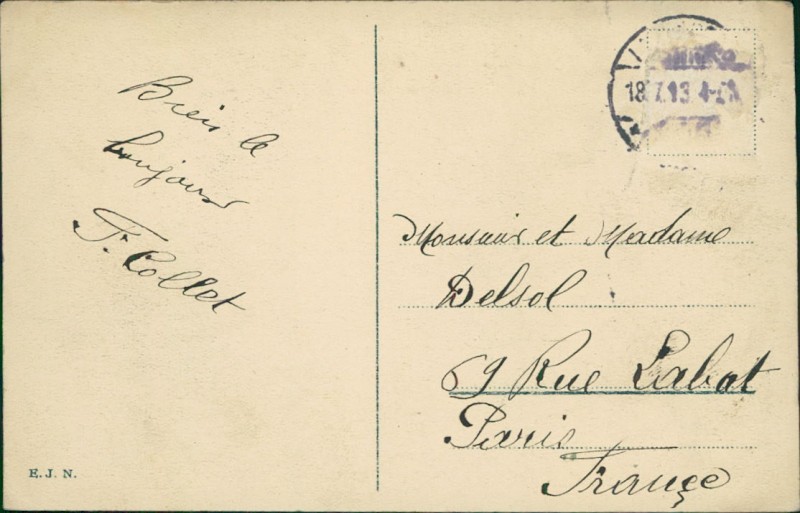 Bien le
bonjour
F. Collet
E. J. N.
18.7.13. 4-5N
Monsieur et Madame
Delsol
69 Rue Labat
Paris
France